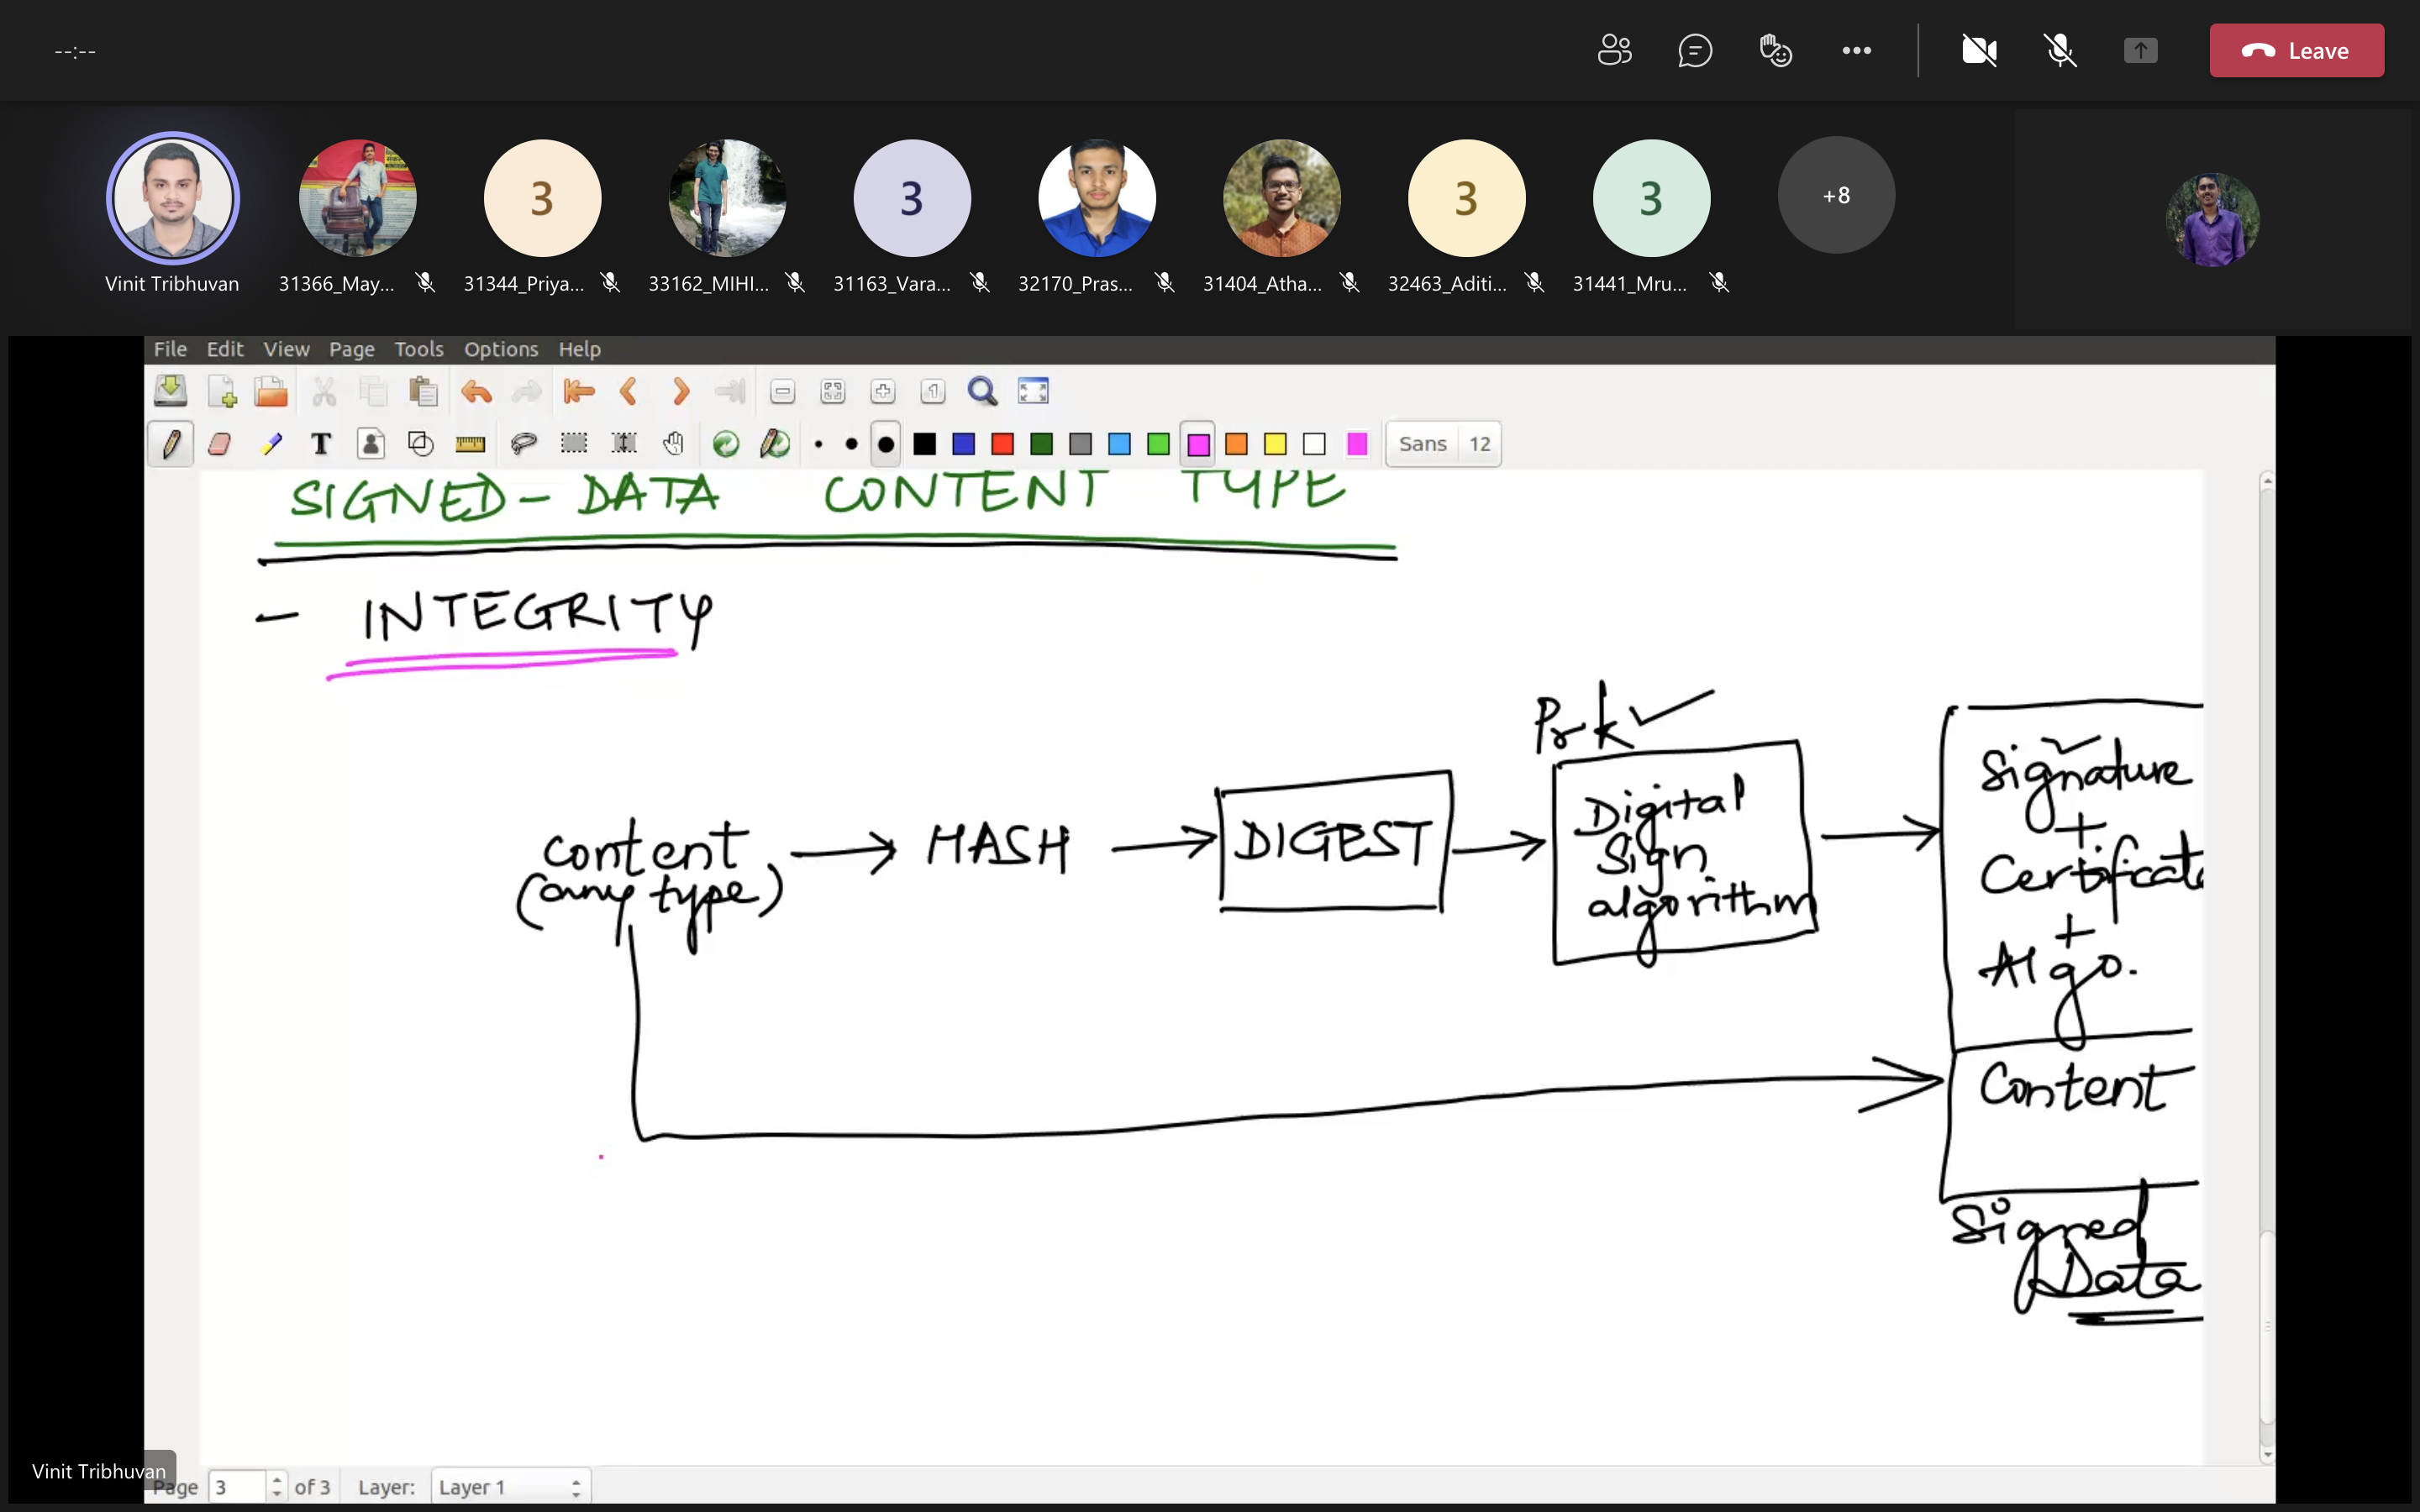 --:--
Leave
3
3
3
3
+8
Vinit Tribhuvan
31366_May...
31344_Priya...
33162_MIHI...
31163_Vara...
32170_Pras...
31404_Atha...
32463_Aditi...
31441_Mru...
File Edit View Page Tools Options Help
Sans 12
SIGNED - DATA CONTENT TYPE
- INTEGRITY
Prk
content
(any type)
HASH
DIGEST
Digital
Sign
algorithm
Signature
+
Certificate
+
Algo.
Content
Signed
Data
Vinit Tribhuvan
Page 3 of 3 Layer: Layer 1